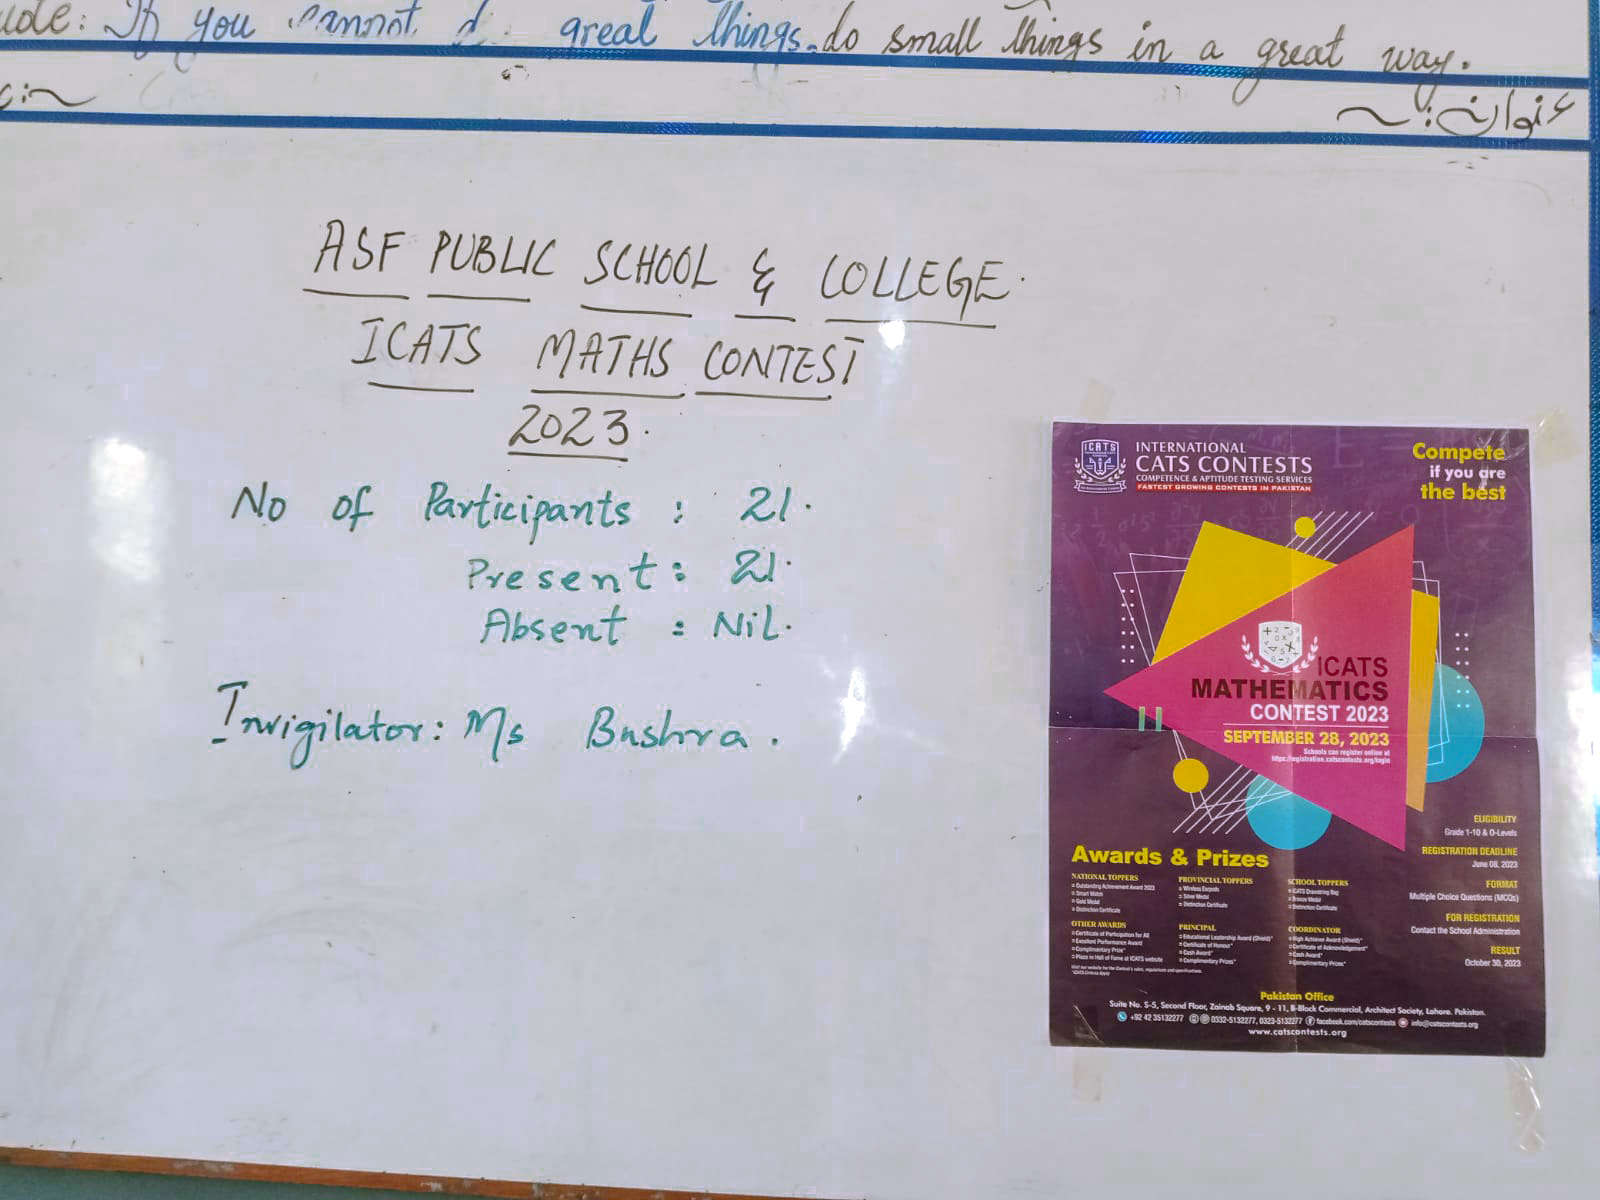 uote: If you cannot do great things. do small things in a great way.
عنوان:
ASF PUBLIC SCHOOL & COLLEGE.
ICATS MATHS CONTEST
2023.
No of Participants : 21.
Present : 21.
Absent : Nil.
Invigilator: Ms Bushra.
ICATS
INTERNATIONAL
CATS CONTESTS
COMPETENCE & APTITUDE TESTING SERVICES
FASTEST GROWING CONTESTS IN PAKISTAN
Compete
if you are
the best
ICATS
MATHEMATICS
CONTEST 2023
SEPTEMBER 28, 2023
Schools can register online at
https://registration.catscontests.org/login
ELIGIBILITY
Grade 1-10 & O-Levels
REGISTRATION DEADLINE
June 08, 2023
FORMAT
Multiple Choice Questions (MCQs)
FOR REGISTRATION
Contact the School Administration
RESULT
October 30, 2023
Awards & Prizes
NATIONAL TOPPERS
Outstanding Achievement Award 2023
Smart Watch
Gold Medal
Distinction Certificate
PROVINCIAL TOPPERS
Wireless Earpods
Silver Medal
Distinction Certificate
SCHOOL TOPPERS
ICATS Drawstring Bag
Bronze Medal
Distinction Certificate
OTHER AWARDS
Certificate of Participation for All
Excellent Performance Award
Complimentary Prize*
Place in Hall of Fame at ICATS website
PRINCIPAL
Educational Leadership Award (Shield)*
Certificate of Honour*
Cash Award*
Complimentary Prizes*
COORDINATOR
High Achiever Award (Shield)*
Certificate of Acknowledgement*
Cash Award*
Complimentary Prizes*
Visit our website for the Contest's rules, regulations and specifications.
*ICATS Criteria Apply
Pakistan Office
Suite No. S-5, Second Floor, Zainab Square, 9 - 11, B-Block Commercial, Architect Society, Lahore. Pakistan.
+92 42 35132277 0332-5132277, 0323-5132277 facebook.com/catscontests info@catscontests.org
www.catscontests.org